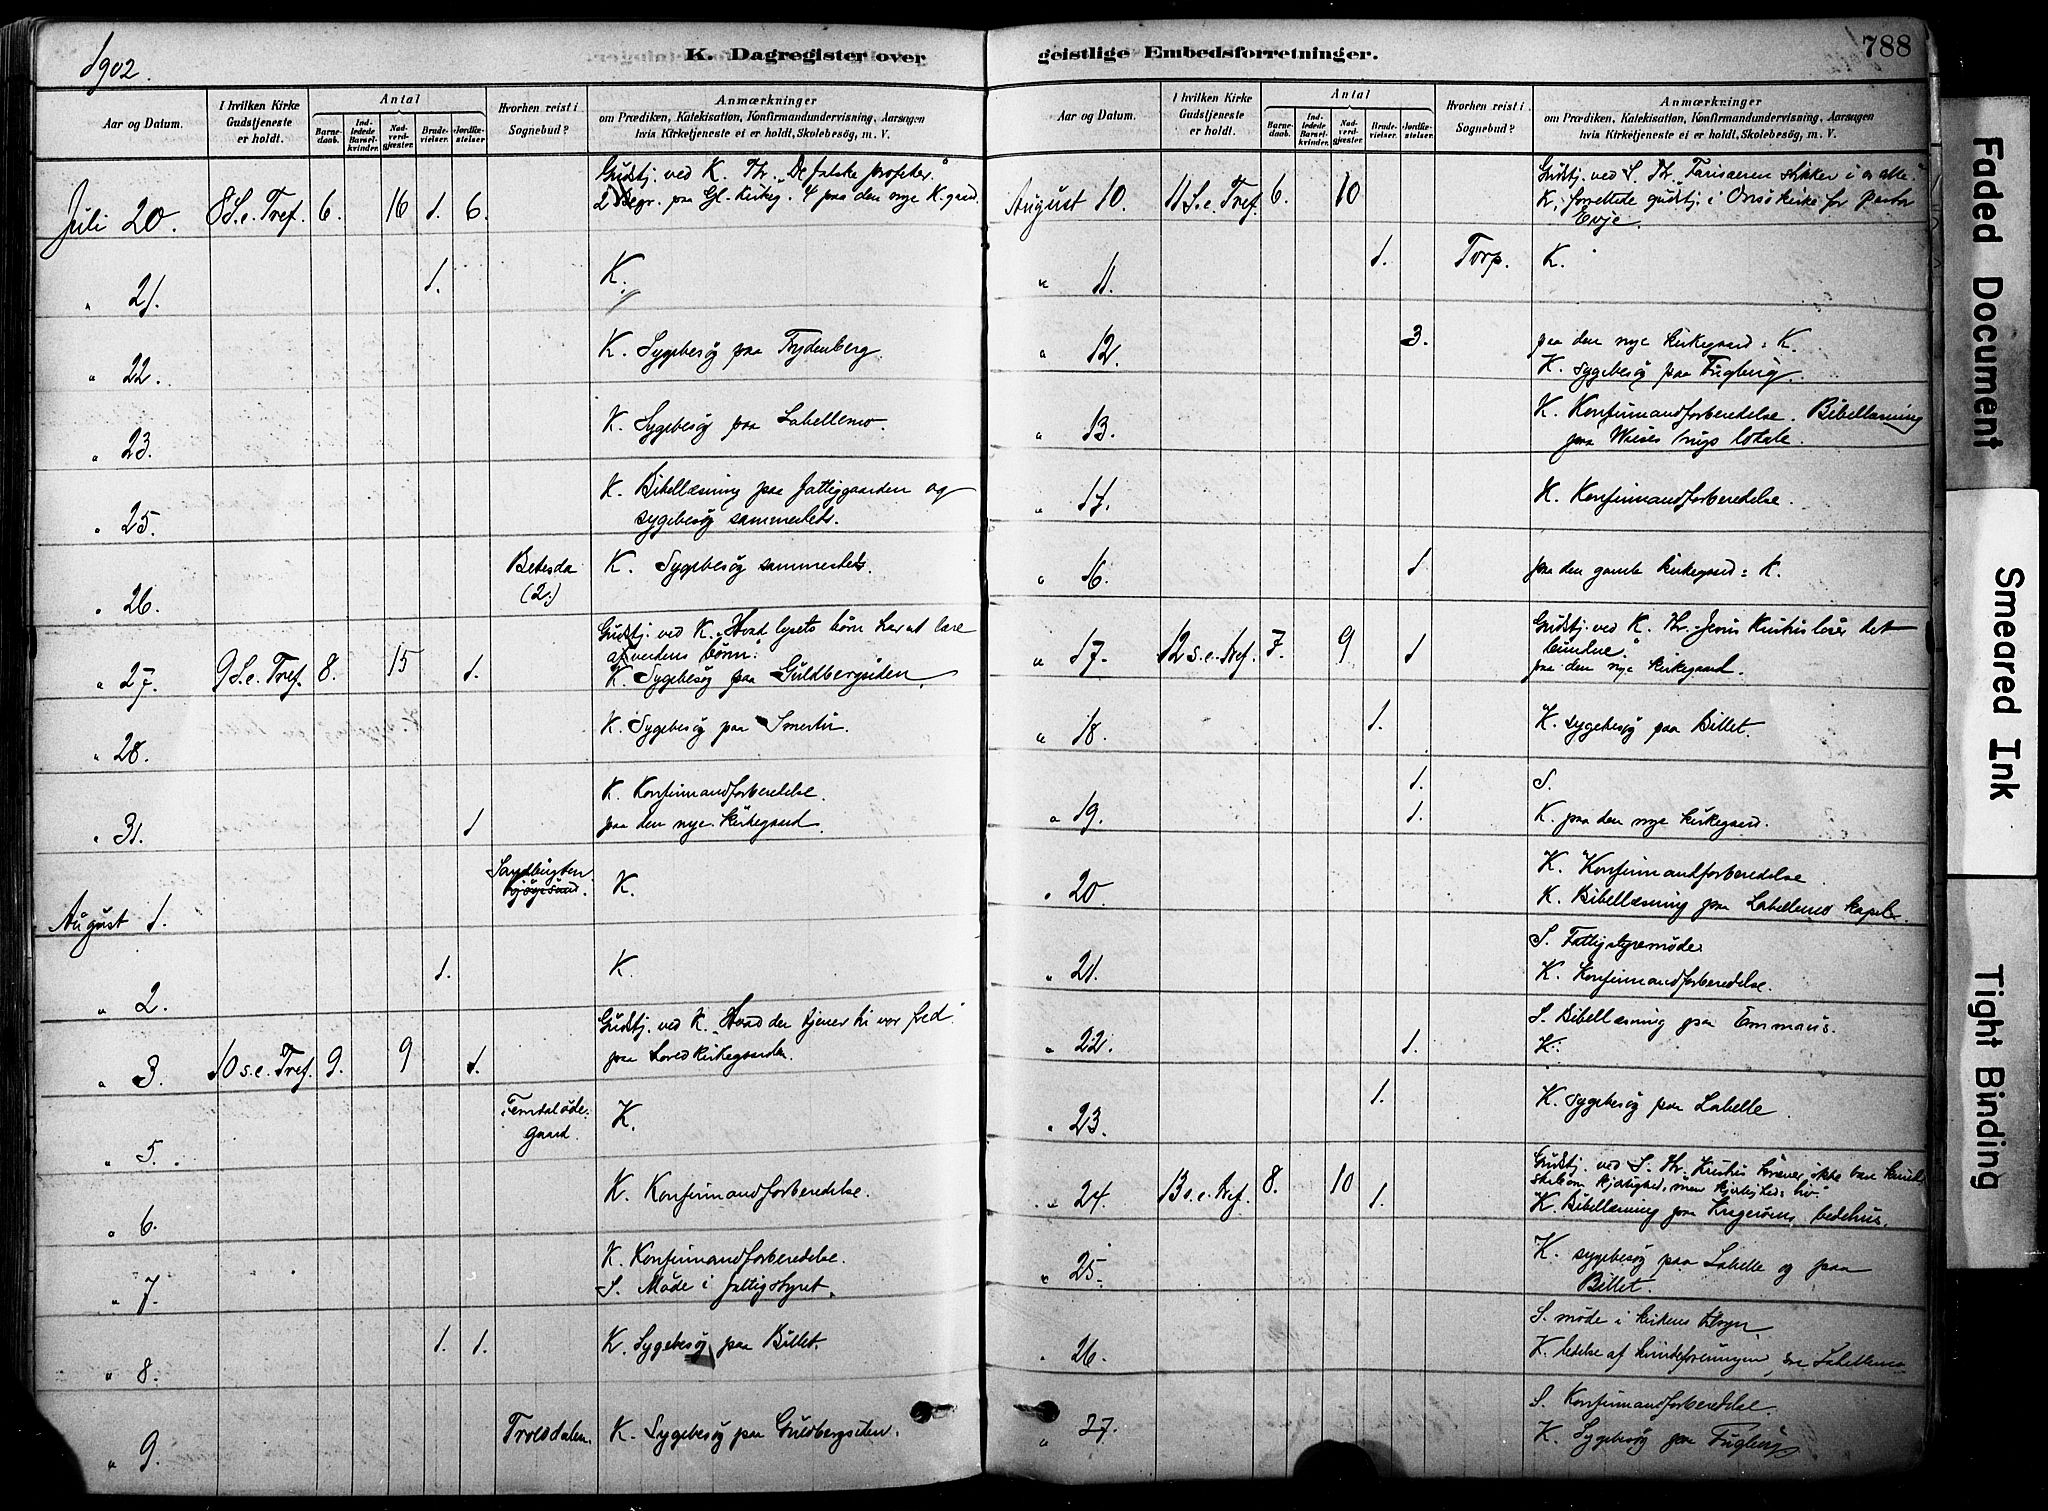 1902.
K. Dagregister over
geistlige Embedsforretninger.
788
Aar og Datum.
I hvilken Kirke Gudstjeneste er holdt.
Antal
Barnedaab.
Indledede Barselkvinder.
Nadverdgjæster.
Brudevielser.
Jordfæstelser
Hvorhen reist i Sognebud?
Anmærkninger
om Prædiken, Katekisation, Konfirmandundervisning, Aarsagen
hvis Kirketjeneste ei er holdt, Skolebesøg, m. V.
Juli 20. 8 S. e. Tref. 6. 16 1. 6. Gudstj. ved K. Th. "De falske profeter."
2 Begr. paa Gl. Kirkeg. 4 paa den nye K.gaard
" 21. 1. K.
" 22. K. Sygebesøg paa Trydenberg
" 23. K. Sygebesøg paa Labellemo.
" 25. K. Bibellæsning paa fattiggaarden og
sygebesøg sammesteds.
" 26. Betesda (2.) K. Sygebesøg sammesteds.
" 27. 9 S. e. Tref. 8. 15 1. Gudstj. ved K. "Hvad lysets børn har at lære
af verdens børn."
K. Sygebesøg paa Guldbergsiden.
" 28. K. Sygebesøg paa
" 31. 1 K. Konfirmandforberedelse.
paa den nye kirkegaard.
August 1. Sandbugten. K.
" 2. 1. K.
" 3. 10 s. e. Tref. 9. 9 1. Gudstj. ved K. "Hvad der tjener til vor fred."
paa kirkegaarden.
" 5. gaard. K.
" 6. K. Konfirmandforberedelse.
" 7. K. Konfirmandforberedelse.
S. Møde i fattigstyret.
" 8. 1. 1. K. Sygebesøg paa Billet.
" 9. Trolddalen. K. Sygebesøg paa Guldbergsiden.
Aar og Datum.
I hvilken Kirke Gudstjeneste er holdt.
Antal
Barnedaab.
Indledede Barselkvinder.
Nadverdgjæster.
Brudevielser.
Jordfæstelser
Hvorhen reist i Sognebud?
Anmærkninger
om Prædiken, Katekisation, Konfirmandundervisning, Aarsagen
hvis Kirketjeneste ei er holdt, Skolebesøg, m. V.
August 10. 11 S. e. Tref. 6. 10 Gudstj. ved S. Th. Farisæeren stikker i os alle."
K. forrettede gudstj. i Onsø kirke for pastor
Evje.
" 11. 1. Torp. K.
" 12. 3. paa den nye kirkegaard: K.
K. Sygebesøg paa Fugleng.
" 13. K. Konfirmandforberedelse. Bibellæsning
paa Wieses brugs lokale.
" 14. K. Konfirmandforberedelse.
" 16. 1 paa den gamle kirkegaard: K.
" 17. 12 s. e. Tref. 7. 9 1 Gudstj. ved K. Th. Jesus Kristus løser det
bundne."
paa den nye kirkegaard.
" 18. 1. K. sygebesøg paa Billet.
" 19. 1. S.
1. K. paa den nye kirkegaard.
" 20. K. Konfirmandforberedelse.
K. Bibellæsning paa Labellemo kapel.
" 21. S. Fattigstyremøde.
K. Konfirmandforberedelse.
" 22. S. Bibellæsning paa Emmaus.
1. K.
" 23. 1. K. sygebesøg paa Labelle.
" 24. 13 s. e. Tref. 8. 10 1. Gudstj. ved S. Th. Kristus kræver ikke bare
kjærlighed, men
K. Bibellæsning paa bedehus.
" 25. K. sygebesøg paa Labelle og paa
Billet.
" 26. S. møde i kirkens tilsyn.
K. ledelse af kvindeforeningen Labellemo
" 27. S. Konfirmandforberedelse.
K. Sygebesøg paa Fugleng
Faded Document
Smeared Ink
Tight Binding